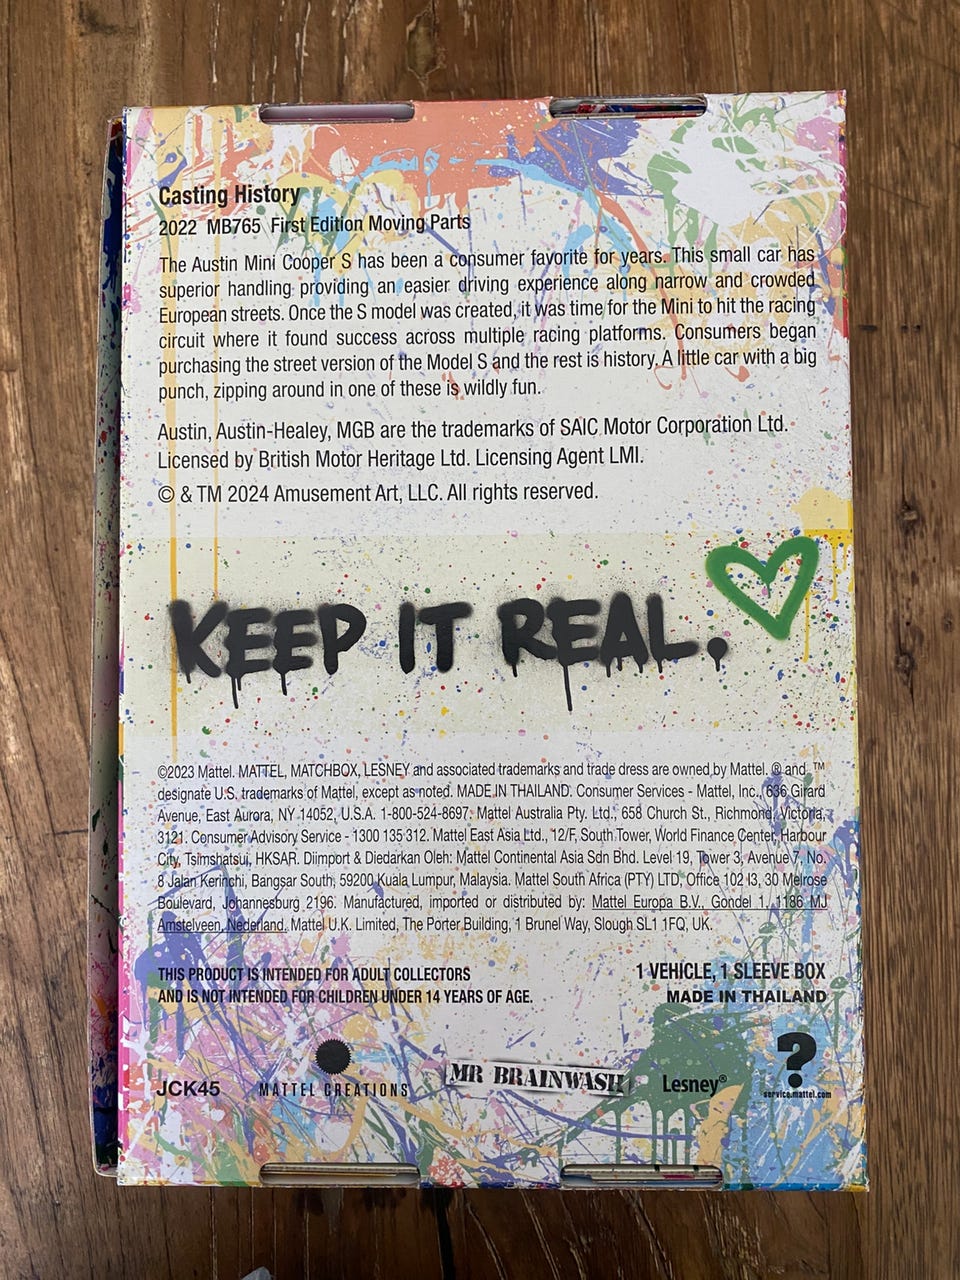 Casting History
2022 MB765 First Edition Moving Parts
The Austin Mini Cooper S has been a consumer favorite for years. This small car has
superior handling providing an easier driving experience along narrow and crowded
European streets. Once the S model was created, it was time for the Mini to hit the racing
circuit where it found success across multiple racing platforms. Consumers began
purchasing the street version of the Model S and the rest is history. A little car with a big
punch, zipping around in one of these is wildly fun.
Austin, Austin-Healey, MGB are the trademarks of SAIC Motor Corporation Ltd.
Licensed by British Motor Heritage Ltd. Licensing Agent LMI.
© & TM 2024 Amusement Art, LLC. All rights reserved.
KEEP IT REAL.
©2023 Mattel. MATTEL, MATCHBOX, LESNEY and associated trademarks and trade dress are owned by Mattel. ® and ™
designate U.S. trademarks of Mattel, except as noted. MADE IN THAILAND. Consumer Services - Mattel, Inc., 636 Girard
Avenue, East Aurora, NY 14052, U.S.A. 1-800-524-8697. Mattel Australia Pty. Ltd., 658 Church St., Richmond, Victoria,
3121. Consumer Advisory Service - 1300 135 312. Mattel East Asia Ltd., 12/F, South Tower, World Finance Center, Harbour
City, Tsimshatsui, HKSAR. Diimport & Diedarkan Oleh: Mattel Continental Asia Sdn Bhd. Level 19, Tower 3, Avenue 7, No.
8 Jalan Kerinchi, Bangsar South, 59200 Kuala Lumpur, Malaysia. Mattel South Africa (PTY) LTD, Office 102 I3, 30 Melrose
Boulevard, Johannesburg 2196. Manufactured, imported or distributed by: Mattel Europa B.V., Gondel 1, 1186 MJ
Amstelveen, Nederland. Mattel U.K. Limited, The Porter Building, 1 Brunel Way, Slough SL1 1FQ, UK.
THIS PRODUCT IS INTENDED FOR ADULT COLLECTORS
AND IS NOT INTENDED FOR CHILDREN UNDER 14 YEARS OF AGE.
1 VEHICLE, 1 SLEEVE BOX
MADE IN THAILAND
JCK45
MATTEL CREATIONS
MR BRAINWASH
Lesney®
?
service.mattel.com